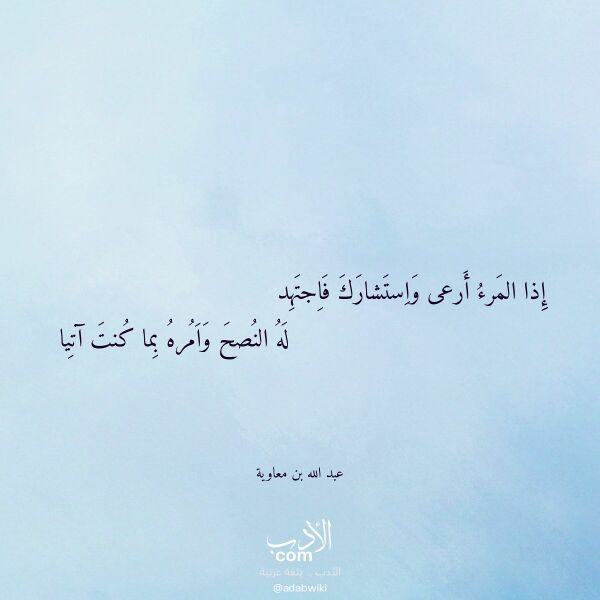 إِذا المَرءُ أَرعى وَاِستَشارَكَ فَاِجتَهِد
لَهُ النُصحَ وَاَمُرهُ بِما كُنتَ آتِيا
عبد الله بن معاوية
الأدب
com
الأدب .. بلغة عربية
@adabwiki